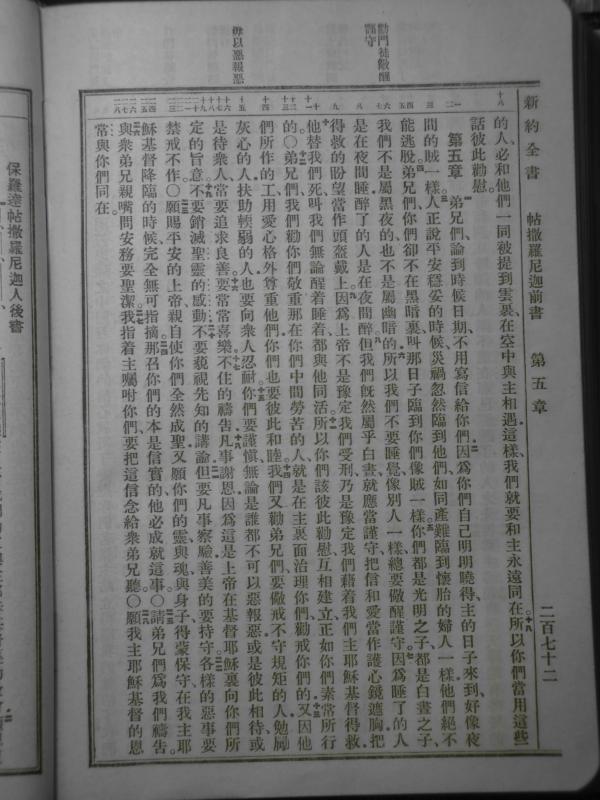 新約全書 帖撒羅尼迦前書 第五章 二百七十二
勸門徒儆醒謹守
毋以惡報惡
的人、必和他們一同被提到雲裏、在空中與主相遇這樣、我們就要和主永遠同在所以你們當用這些
話彼此勸慰
第五章 弟兄們、論到時候日期、不用寫信給你們因爲你們自己明明曉得主的日子來到、好像夜
間的賊一樣人正說平安穩妥的時候災禍忽然臨到他們如同產難臨到懷胎的婦人一樣他們絕不
能逃脫弟兄們、你們卻不在黑暗裏叫那日子臨到你們像賊一樣你們都是光明之子、都是白晝之子、
我們不是屬黑夜的也不是屬幽暗的所以我們不要睡覺像別人一樣總要儆醒謹守因爲睡了的人
是在夜間睡醉了的人是在夜間醉但我們旣然屬乎白晝就應當謹守把信和愛當作護心鏡遮胸把
得救的盼望當作頭盔戴上因爲上帝不是豫定我們受刑、乃是豫定我們藉着我們主耶穌基督得救
他替我們死叫我們無論醒着睡着都與他同活所以你們該彼此勸慰互相建立正如你們素常所行
的〇弟兄們我們勸你們敬重那在你們中間勞苦的人就是在主裏面治理你們、勸戒你們的又因他
們所作的工用愛心格外尊重他們你們也要彼此和睦我們又勸弟兄們要儆戒不守規矩的人勉勵
灰心的人扶助輭弱的人也要向衆人忍耐你們要謹愼無論是誰都不可以惡報惡或是彼此相待或
是待衆人常要追求良善要常常喜樂不住的禱告凡事謝恩因爲這是上帝在基督耶穌裏向你們所
定的旨意不要銷滅聖靈的感動不要藐視先知的講論但要凡事察驗善美的要持守各樣的惡事要
禁戒不作〇願賜平安的上帝親自使你們全然成聖又願你們的靈與魂與身子得蒙保守在我主耶
穌基督降臨的時候完全無可指摘那召你們的本是信實的他必成就這事〇請弟兄們爲我們禱告
與衆弟兄親嘴問安務要聖潔我指着主囑咐你們要把這信念給衆弟兄聽〇願我主耶穌基督的恩
常與你們同在
保羅達帖撒羅尼迦人後書